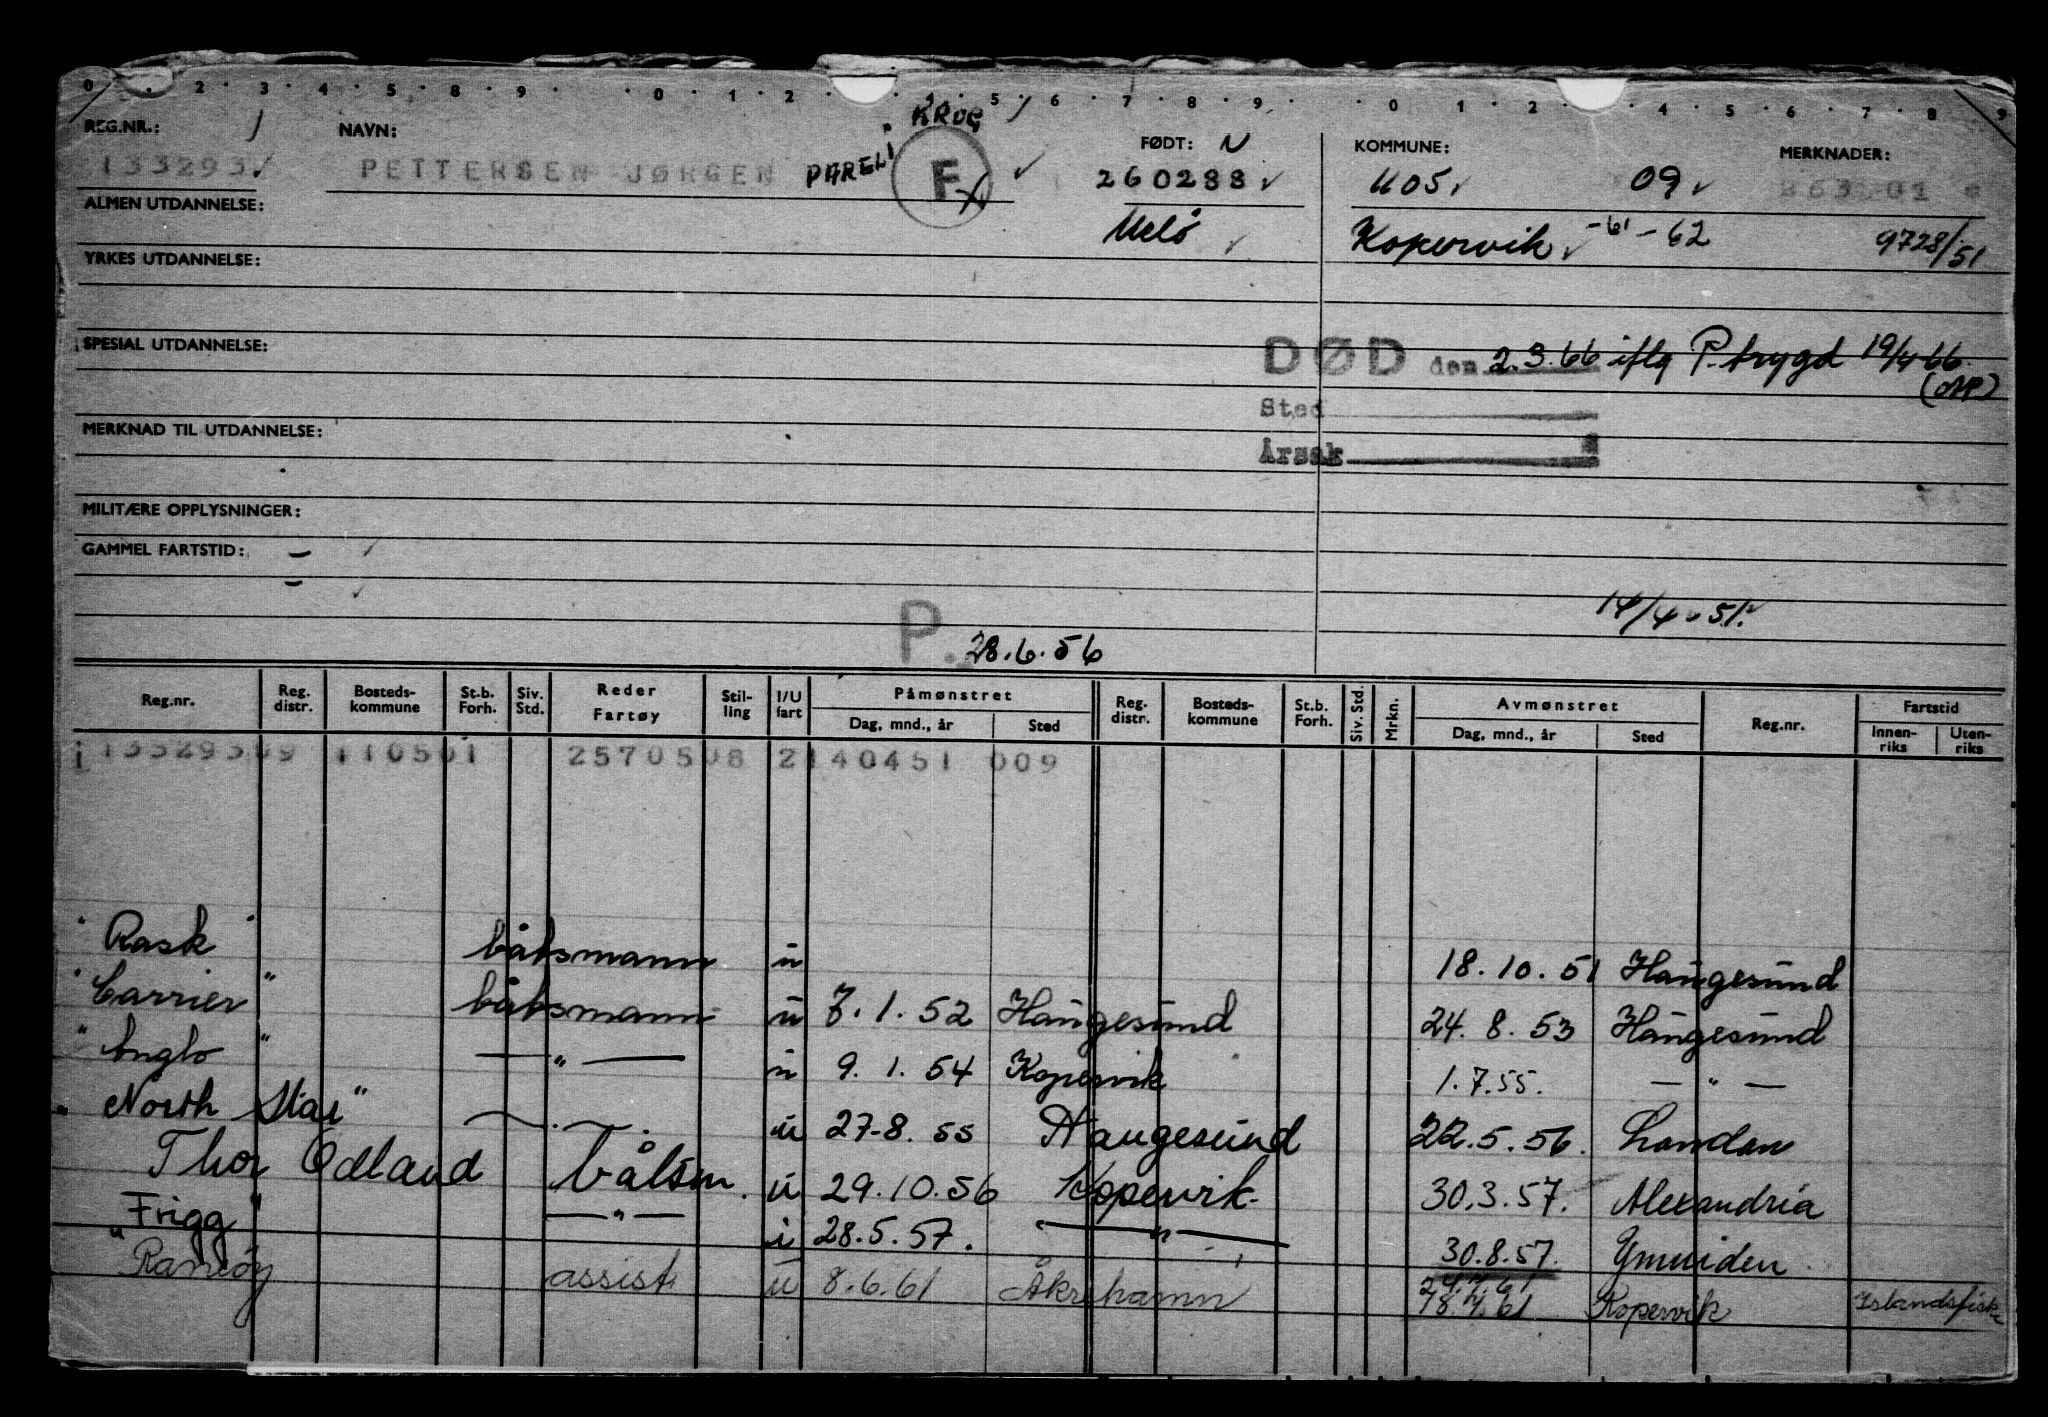 0 · 2 · 3 · 4 · 5 · 8 · 9 · 0 · 1 · 2 · 4 · 5 · 6 · 7 · 8 · 9 · 0 · 1 · 2 · 4 · 5 · 6 · 7 · 8 · 9
KROG
REG.NR.: NAVN: FØDT: N KOMMUNE: MERKNADER:
133293 PETTERSEN JØRGEN PARELI F 260288 1105 09 863 01
ALMEN UTDANNELSE: Melö Kopervik -61-62 9728/51
YRKES UTDANNELSE:
SPESIAL UTDANNELSE: DØD den 2.3.66 iflg P. trygd 19/4 66.
Sted
MERKNAD TIL UTDANNELSE:
Årsak
MILITÆRE OPPLYSNINGER:
GAMMEL FARTSTID: –
–
14/4-51.
P. 28.6.56
Reg.nr. Reg. distr. Bosteds-kommune St.b. Forh. Siv. Std. Reder Fartøy Stil-ling I/U fart Påmønstret Reg. distr. Bosteds-kommune St.b. Forh. Siv. Std. Mrkn. Avmønstret Reg.nr. Fartstid
Dag, mnd., år Sted Dag, mnd., år Sted Innen-riks Uten-riks
13329309 110501 2570508 2140451 009
"Rask" båtsmann u 18.10.51 Haugesund
"Carrier" båtsmann u 7.1.52 Haugesund 24.8.53 Haugesund
"Anglo" — " — u 9.1.54 Kopervik 1.7.55. — " —
"North Star" u 27-8.55 Haugesund 22.5.56. London
Thor Odland båtsm. u 29.10.56 Kopervik. 30.3.57. Alexandria
"Frigg" — " — i 28.5.57. — " — 30.8.57. Ymuiden
Ramöy assist. u 8.6.61 Åkrehamn 18.7.61 Kopervik Islandsfiske